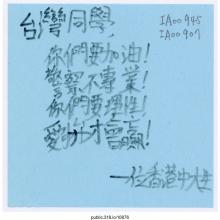 台灣同學,
IA00945
IA00907
你們要加油!
警察不專業!
你們要理性!
愛拚才會贏!
一位香港中大生
public.318.io/10876